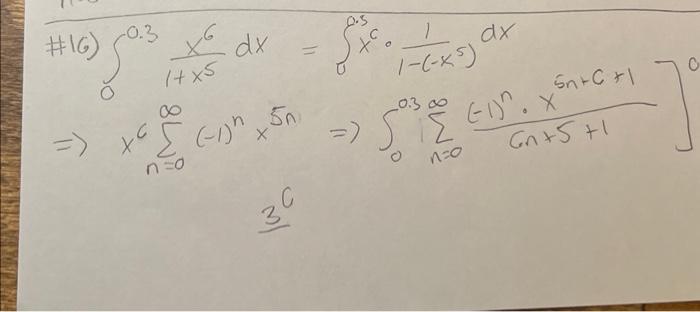 #16) ∫₀^0.3 x^6/(1+x^5) dx = ∫₀^0.3 x^6 · 1/(1-(-x^5)) dx
=> x^6 Σ_{n=0}^∞ (-1)^n x^{5n} => ∫₀^0.3 Σ_{n=0}^∞ (-1)^n · x^{5n+6+1}/(6n+5+1) ]^0
3^6